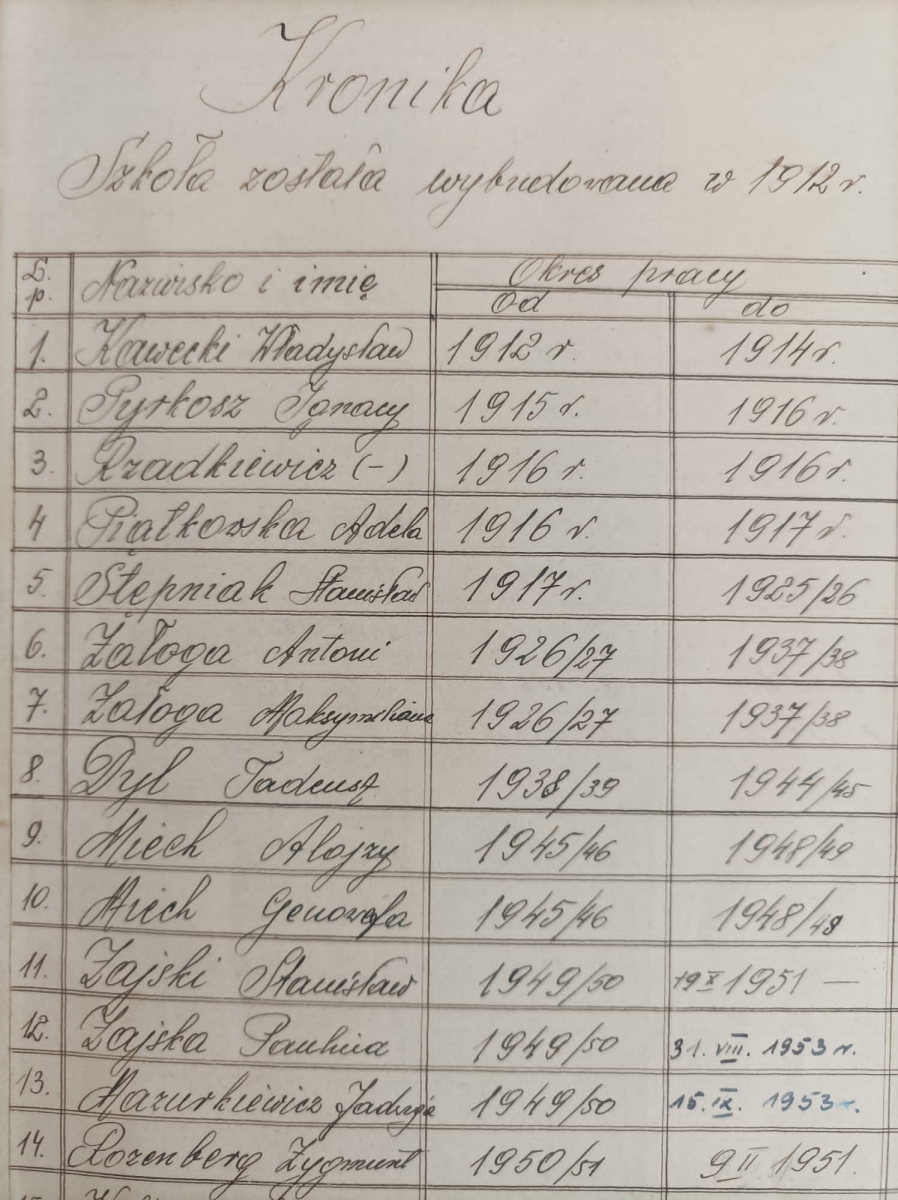 Kronika
Szkoła została wybudowana w 1912 r.
L.p. Nazwisko i imię Okres pracy
Od do
1. Kawecki Władysław 1912 r. 1914 r.
2. Pyrkosz Ignacy 1915 r. 1916 r.
3. Rzadkiewicz (-) 1916 r. 1916 r.
4 Piątkowska Adela 1916 r. 1917 r.
5. Stępniak Stanisław 1917 r. 1925/26
6. Załoga Antoni 1926/27 1937/38
7. Załoga Maksymiliana 1926/27 1937/38
8. Dyl Tadeusz 1938/39 1944/45
9. Miech Alojzy 1945/46 1948/49
10. Miech Genowefa 1945/46 1948/49
11. Zajski Stanisław 1949/50 19 X 1951 —
12. Zajska Paulina 1949/50 31. VIII. 1953 r.
13. Mazurkiewicz Jadwiga 1949/50 15. IX. 1953 r.
14. Rozenberg Zygmunt 1950/51 9 II 1951.